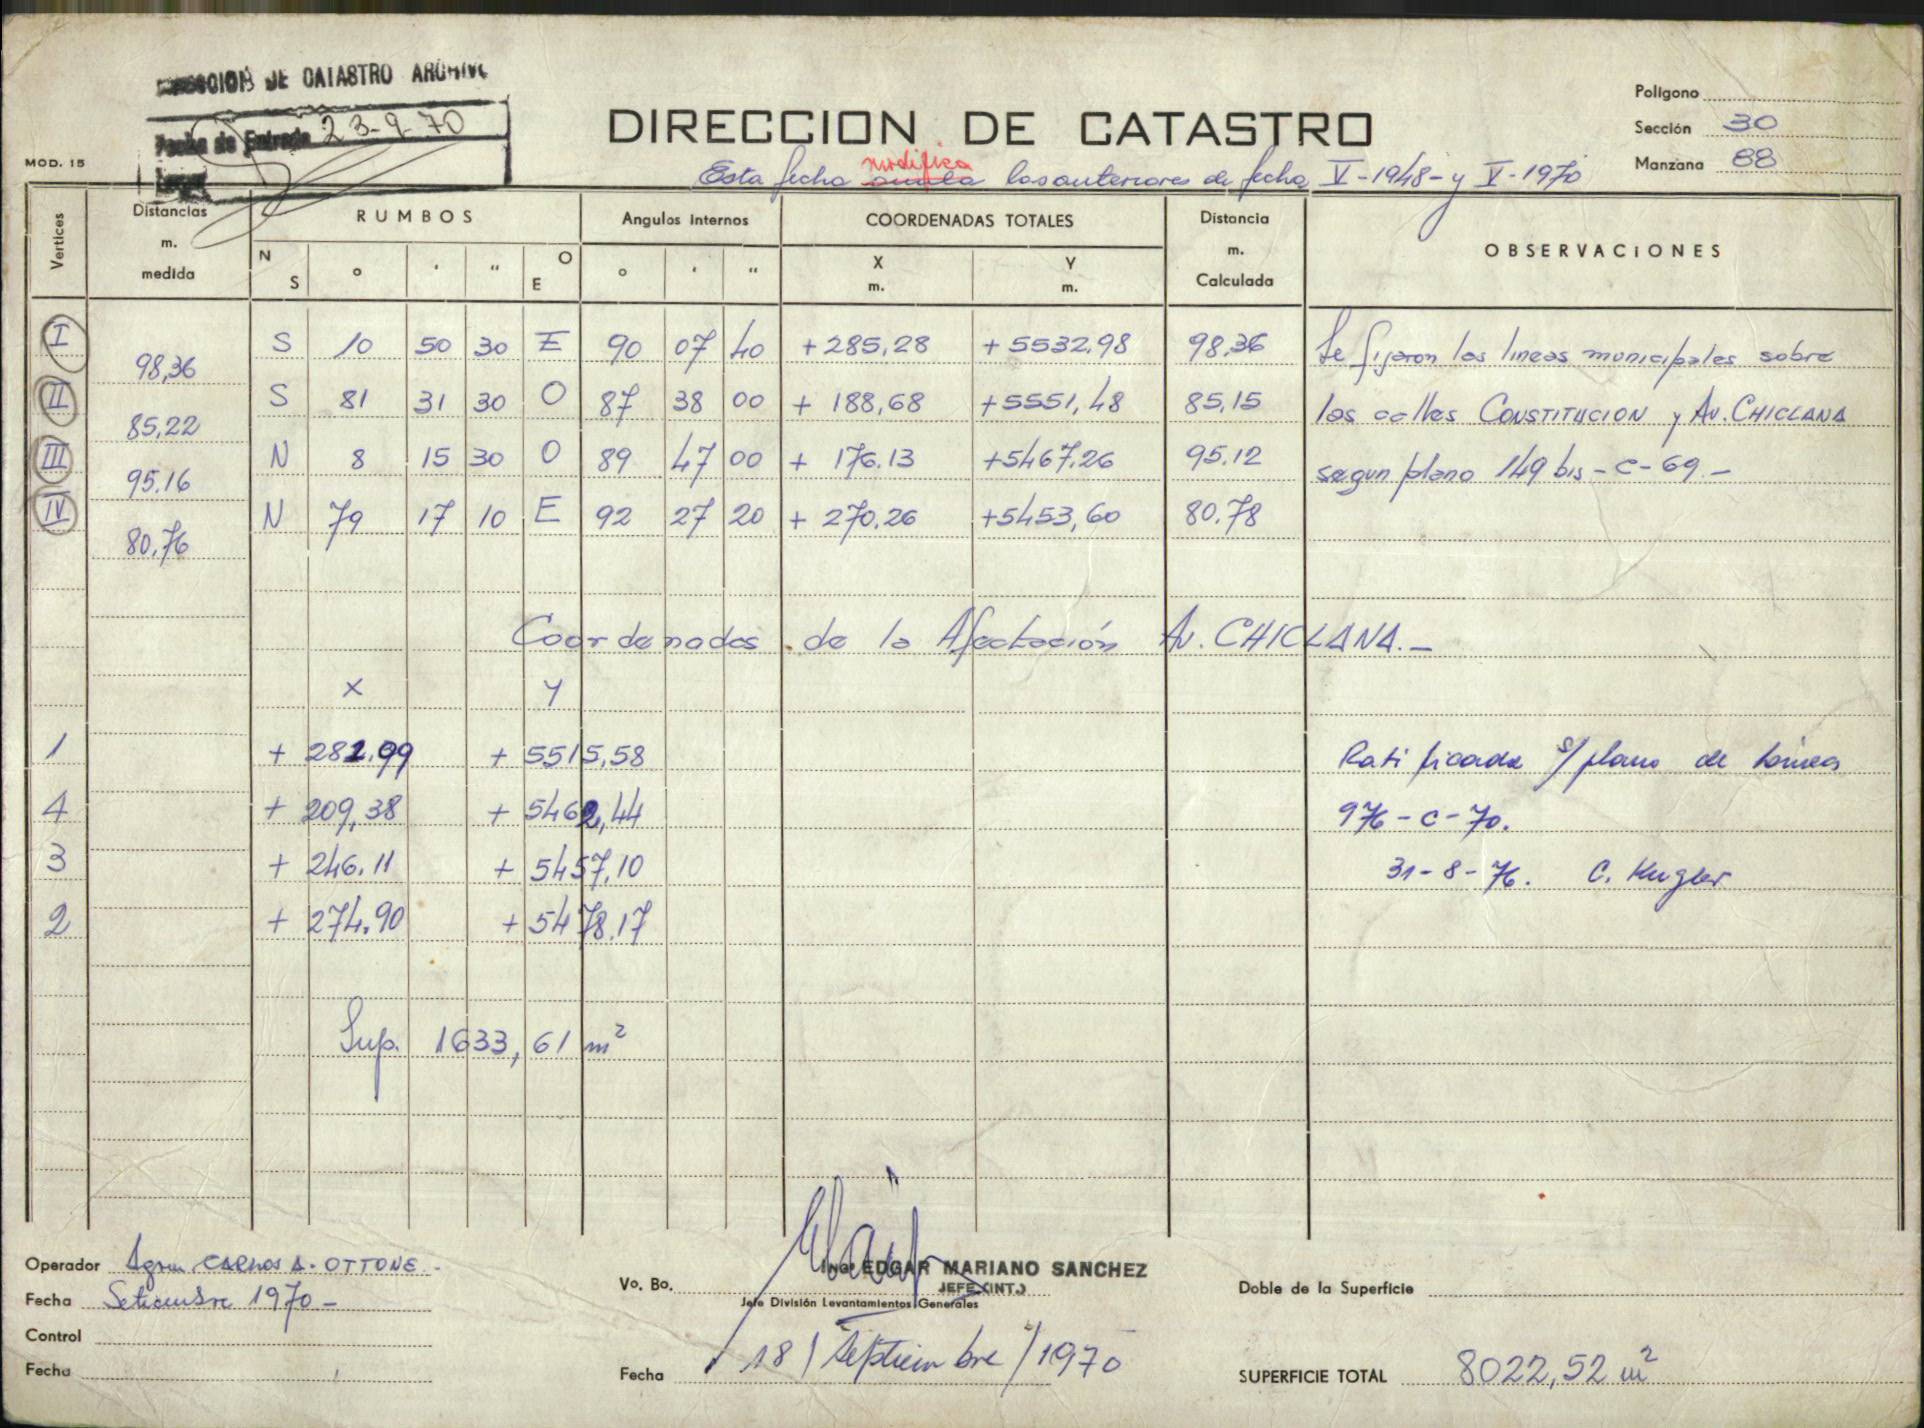 DIRECCION DE CATASTRO ARCHIVO
Fecha de Entrada 23-9-70
Legajo
MOD. 15
DIRECCION DE CATASTRO
Polígono
Sección 30
Manzana 88
modifica
Esta fecha anula las anteriores de fecha V-1948- y V-1970
Vertices
Distancias m. medida
RUMBOS
Angulos Internos
COORDENADAS TOTALES
Distancia m. Calculada
OBSERVACIONES
N S ° ' " O E ° ' " X m. Y m.
I 98,36 S 10 50 30 E 90 07 40 +285,28 +5532,98 98,36 Se fijaron las lineas municipales sobre
II 85,22 S 81 31 30 O 87 38 00 + 188,68 +5551,48 85,15 las calles CONSTITUCION y Av. CHICLANA
III 95.16 N 8 15 30 O 89 47 00 + 176.13 +5467,26 95.12 segun plano 149 bis - C - 69.-
IV 80,76 N 79 17 10 E 92 27 20 + 270.26 +5453,60 80.78
Coordenadas de la Afectación Av. CHICLANA.-
X Y
1 + 282.99 + 5515,58 Ratificada s/plano de línea
4 + 209,38 + 5462,44 976 - C - 70.
3 + 246.11 + 5457,10 31-8-76. C. Kugler
2 + 274.90 + 5478.17
Sup. 1633,61 m²
Operador Agrim. CARLOS A. OTTONE.-
Fecha Setiembre 1970-
Control
Fecha
Vo. Bo.
Ingº EDGAR MARIANO SANCHEZ
JEFE (INT.)
Jefe División Levantamientos Generales
Fecha 18/Septiembre/1970
Doble de la Superficie
SUPERFICIE TOTAL 8022,52 m²